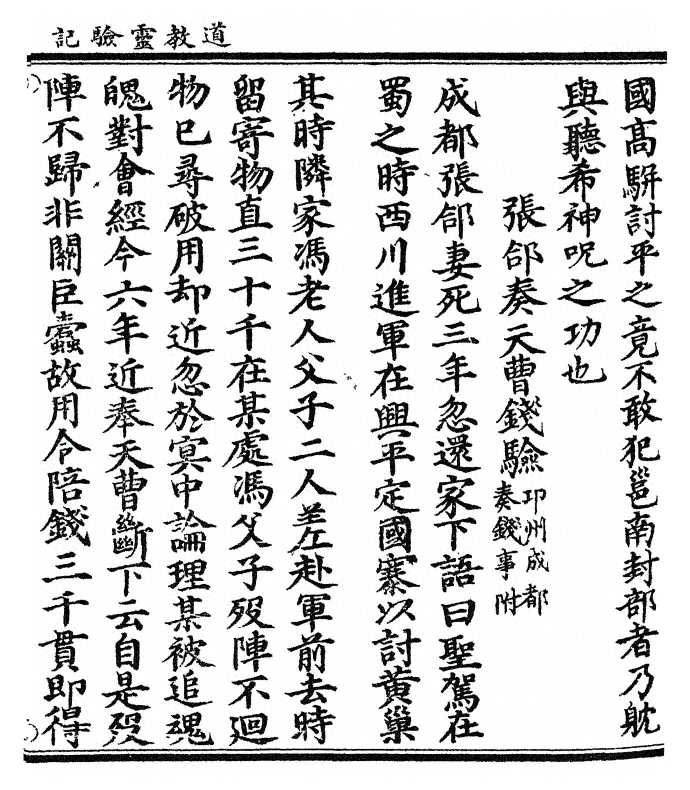 道教靈驗記
國高駢討平之竟不敢犯邕南封部者乃躭
與聽希神呪之功也
張郃奏天曹錢驗卭州成都奏錢事附
成都張郃妻死三年忽還家下語曰聖駕在
蜀之時西川進軍在興平定國寨以討黃巢
其時隣家馮老人父子二人差赴軍前去時
留寄物直三十千在某處馮父子歿陣不迴
物已尋破用却近忽於冥中論理某被追魂
魄對會經今六年近奉天曹斷下云自是歿
陣不歸非關巨蠹故用令陪錢三千貫即得